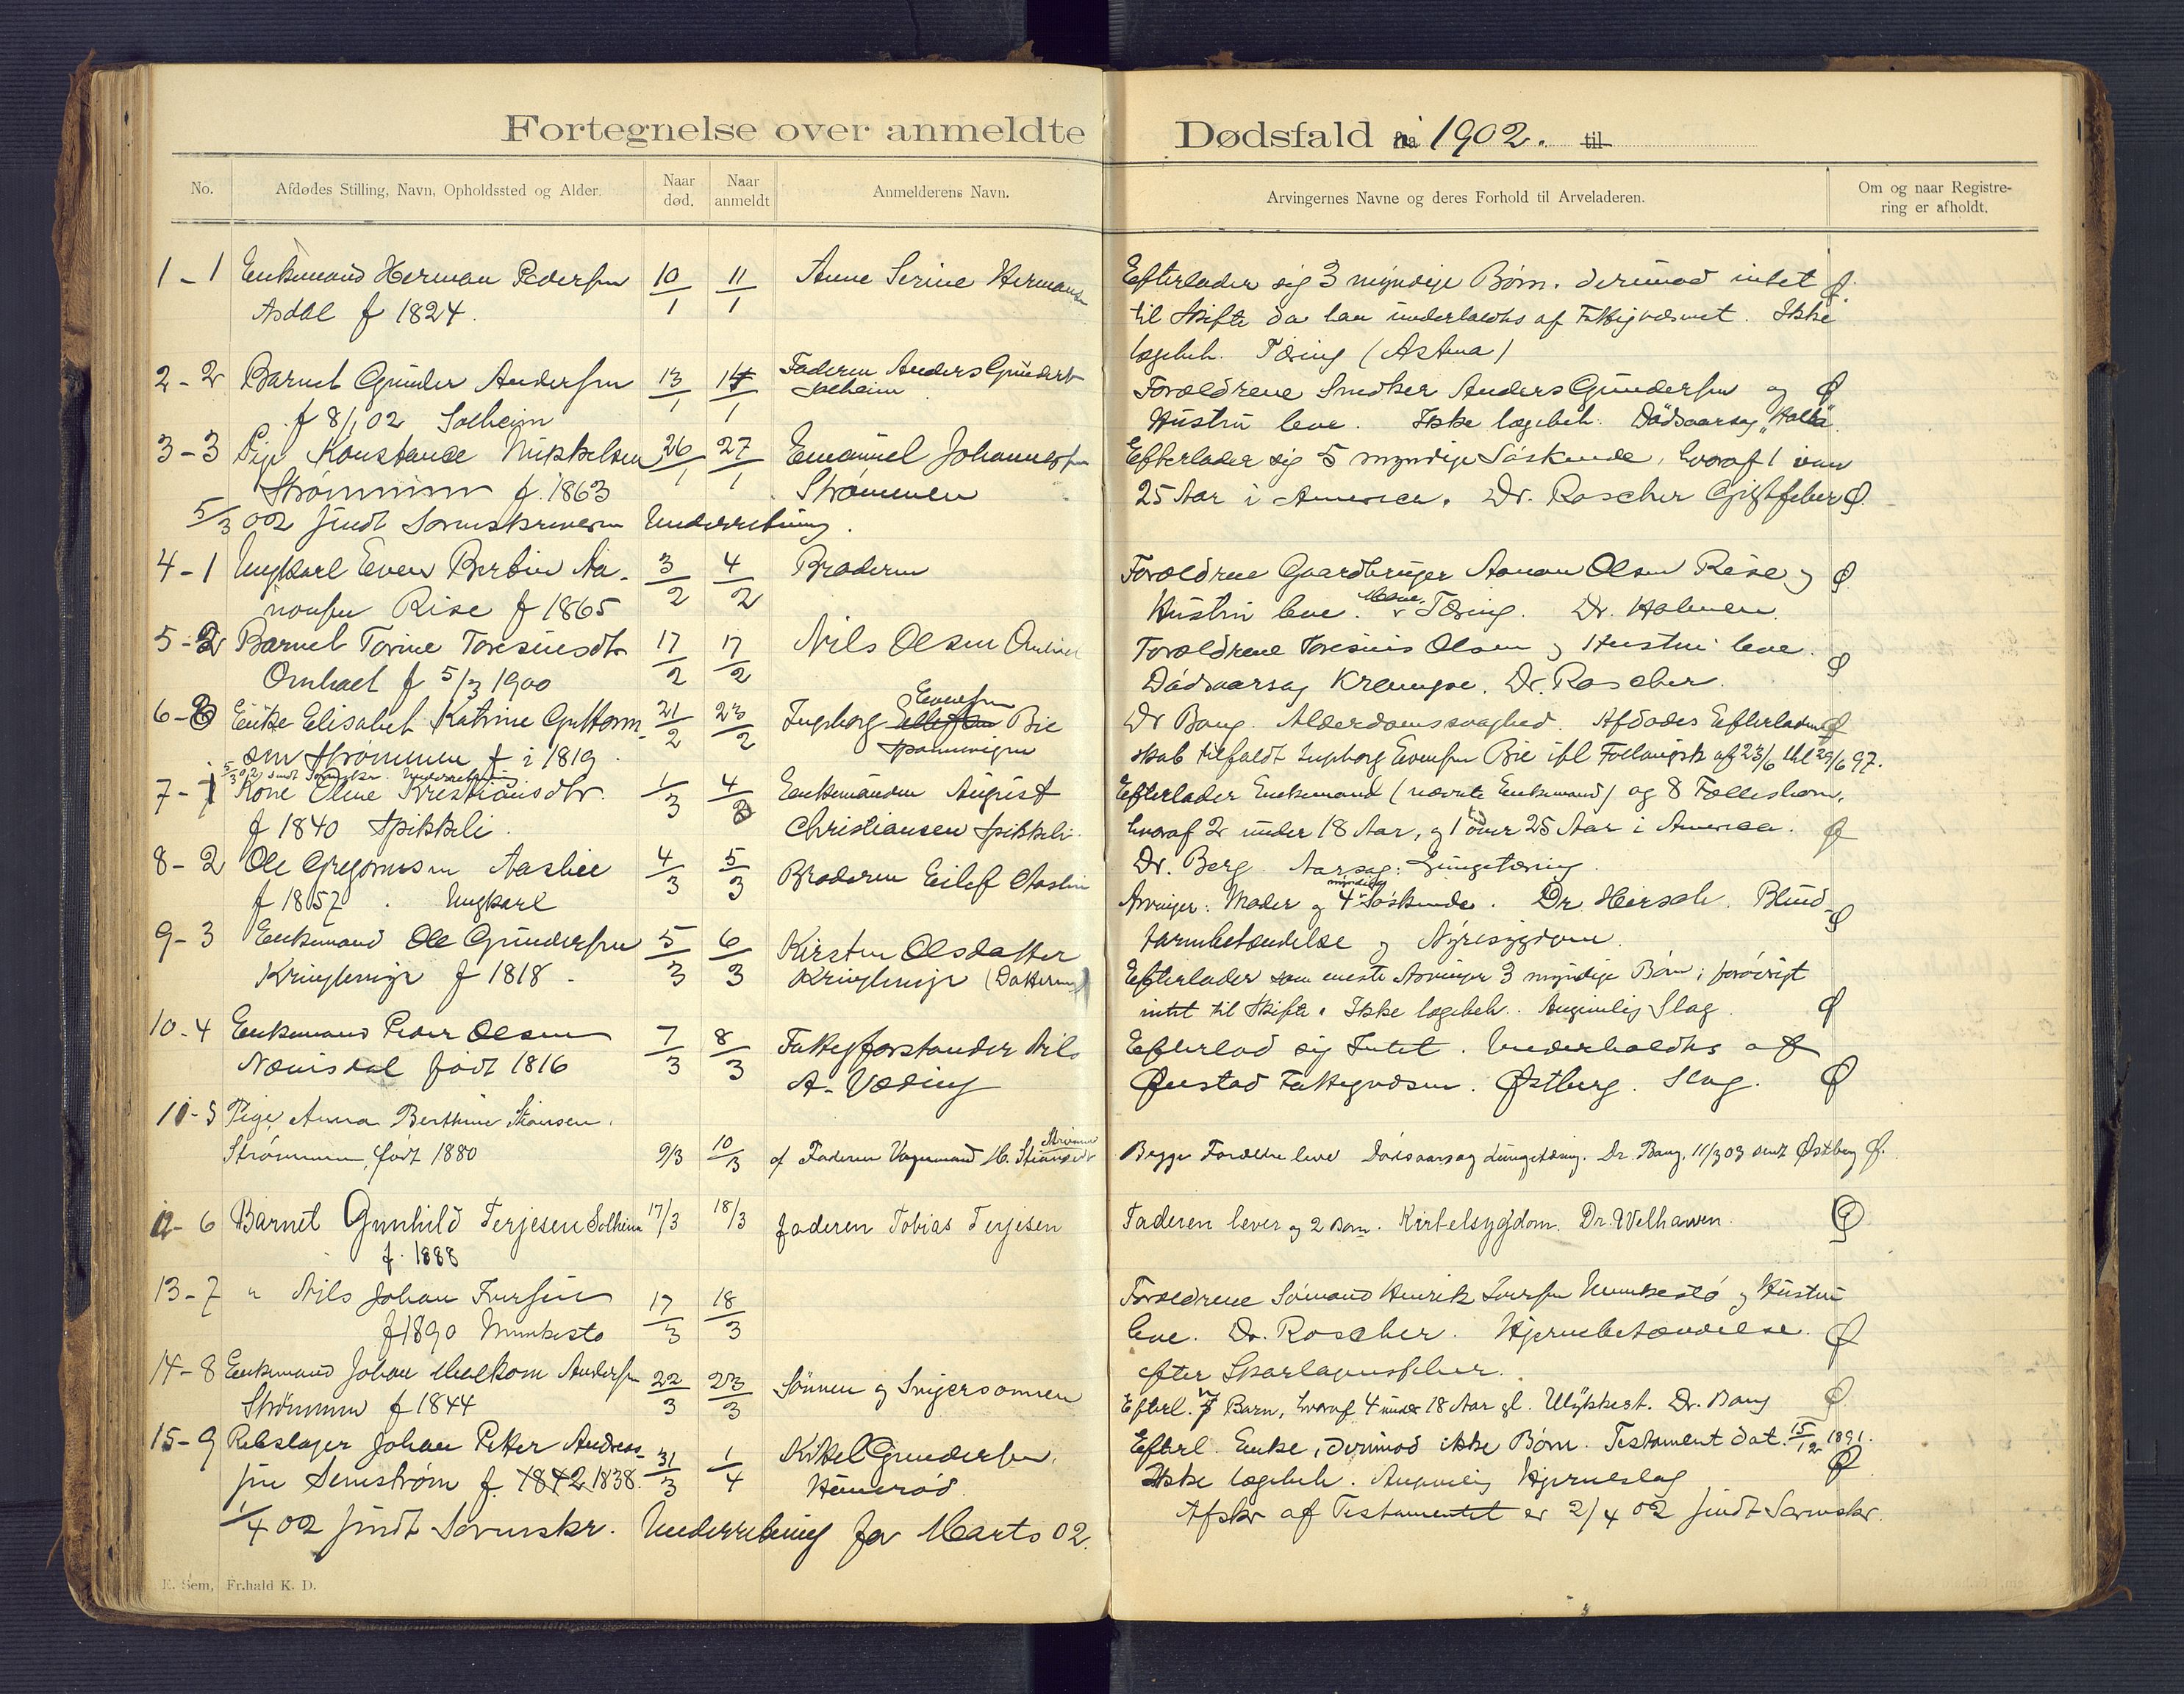 Fortegnelse over anmeldte Dødsfald i 1902. til
No. Afdødes Stilling, Navn, Opholdssted og Alder. Naar død. Naar anmeldt Anmelderens Navn. Arvingernes Navne og deres Forhold til Arveladeren. Om og naar Registrering er afholdt.
1-1 Enkemand Herman Pedersen 10/1 11/1 Anne Serine Hermansen
Asdal f 1824.
Efterlader sig 3 myndige Børn. derimod intet
til Skifte da han underholdtes af Fattigvæsenet. Ikke
lægebeh. Tæring (Astma)
2-2 Barnet Gunder Andersen 13/1 14/1 Faderen Anders Gunders
f 8/1 02 Solheim Solheim
Forældrene Snedker Anders Gundersen og
Hustru leve. Ikke lægebeh. Dødsaarsag
3-3 Pige Konstance Mikkelsen 26/1 27/1 Emanuel Johannessen
Strømmen f. 1863 Strømmen
5/3 02 sendt Sorenskriveren Underretning.
Efterlader sig 5 myndige Søskende, hvoraf 1 over
25 Aar i America. Dr. Roscher Gigtfeber Ø.
4-1 Ungkarl Even Bertin Aa- 3/2 4/2 Broderen
nonsen Rise f 1865
Forældrene Gaardbruger Aanon Olsen Rise og Ø
Hustru leve. Tæring. Dr. Holmen.
5-2 Barnet Torine Toresiusdtr 17/2 17/2 Nils Olsen
Omholt f 5/3 1900
Forældrene Toresius Olsen og Hustru leve. Ø
Dødsaarsag Krampe. Dr. Roscher.
6-3 Enke Elisabet Katrine Guttorm- 21/2 23/2 Ingeborg Evensen Bie
sen Strømmen f i 1819. Spannevigen
5/3 02 sendt Sorenskr. Underretning
Dr Bang. Alderdomssvaghed. Afdødes Efterladen- Ø
skab tilfaldt Ingeborg Evensen Bie ifl Follaugsk af 23/6 thl 29/6 97.
7-1 Kone Oline Kristiansdtr. 1/3 4/3 Enkemanden August
f 1840 Spikkeli. Christiansen Spikkeli.
Efterlader Enkemand (nævnte Enkemand) og 8 Fællesbørn,
hvoraf 2 under 18 Aar, og 1 over 25 Aar i America. Ø
Dr. Berg. Aarsag: Lungetæring.
8-2 Ole Gregorsen Aaslie 4/3 5/3 Broderen Eilef Aaslie
f 1857. Ungkarl
Arvinger: Moder og 4 myndige Søskende. Dr. Hirsch. Blind-
tarmbetændelse og Nyresygdom. Ø
9-3 Enkemand Ole Gundersen 5/3 6/3 Kirsten Olsdatter
Kringlemyr f 1818. Kringlemyr (Datteren)
Efterlader som eneste Arvinger 3 myndige Børn; forøvrigt
intet til Skifte. Ikke lægebeh. Angivelig Slag. Ø
10-4 Enkemand Peder Olsen 7/3 8/3 Fattigforstander Nils
Nævisdal født 1816 A. Væding
Efterlod sig Intet. Underholdtes af
Øiestad Fattigvæsen. Østberg. Slag. Ø
11-5 Pige Anna Berthine Stiansen.
Strømmen, født 1880 9/3 10/3 af Faderen Vognmand H. Stiansen Strømmen
Begge Forældre leve Dødsaarsag Lungetæring. Dr. Bang. 11/3 03 sendt Østberg Ø.
12-6 Barnet Gunhild Terjesen Solheim 17/3 18/3 faderen Tobias Terjesen
f. 1888
Faderen lever og 2 Børn. Kirtelsygdom. Dr. Welhaven. Ø
13-7 " Nils Johan Iversen 17/3 18/3
f 1890 Munkestø
Forældrene Sømand Henrik Iversen Munkestø og Hustru
leve. Dr. Roscher. Hjernebetændelse Ø
efter Skarlagensfeber.
14-8 Enkemand Johan Malkom Andersen 22/3 23/3 Sønnen og Svigersønnen
Strømmen f 1844
Efterl. 7 Børn, hvoraf 4 under 18 Aar gl. Ulykkest. Dr. Bang Ø
15-9 Rebslager Johan Peter Andreas- 31/3 1/4 Kittel Gundersen,
sen Semstrøm f. 1842 1838.
Efterl. Enke, derimod ikke Børn. Testament dat. 15/12 1891.
Ikke lægebeh. Angivelig Hjerneslag Ø
Afskr af Testamentet er 2/4 02 sendt Sorenskr.
1/4 02 sendt Sorenskr. Underretning for Marts 02.
E. Sem, Fr.hald K. D.